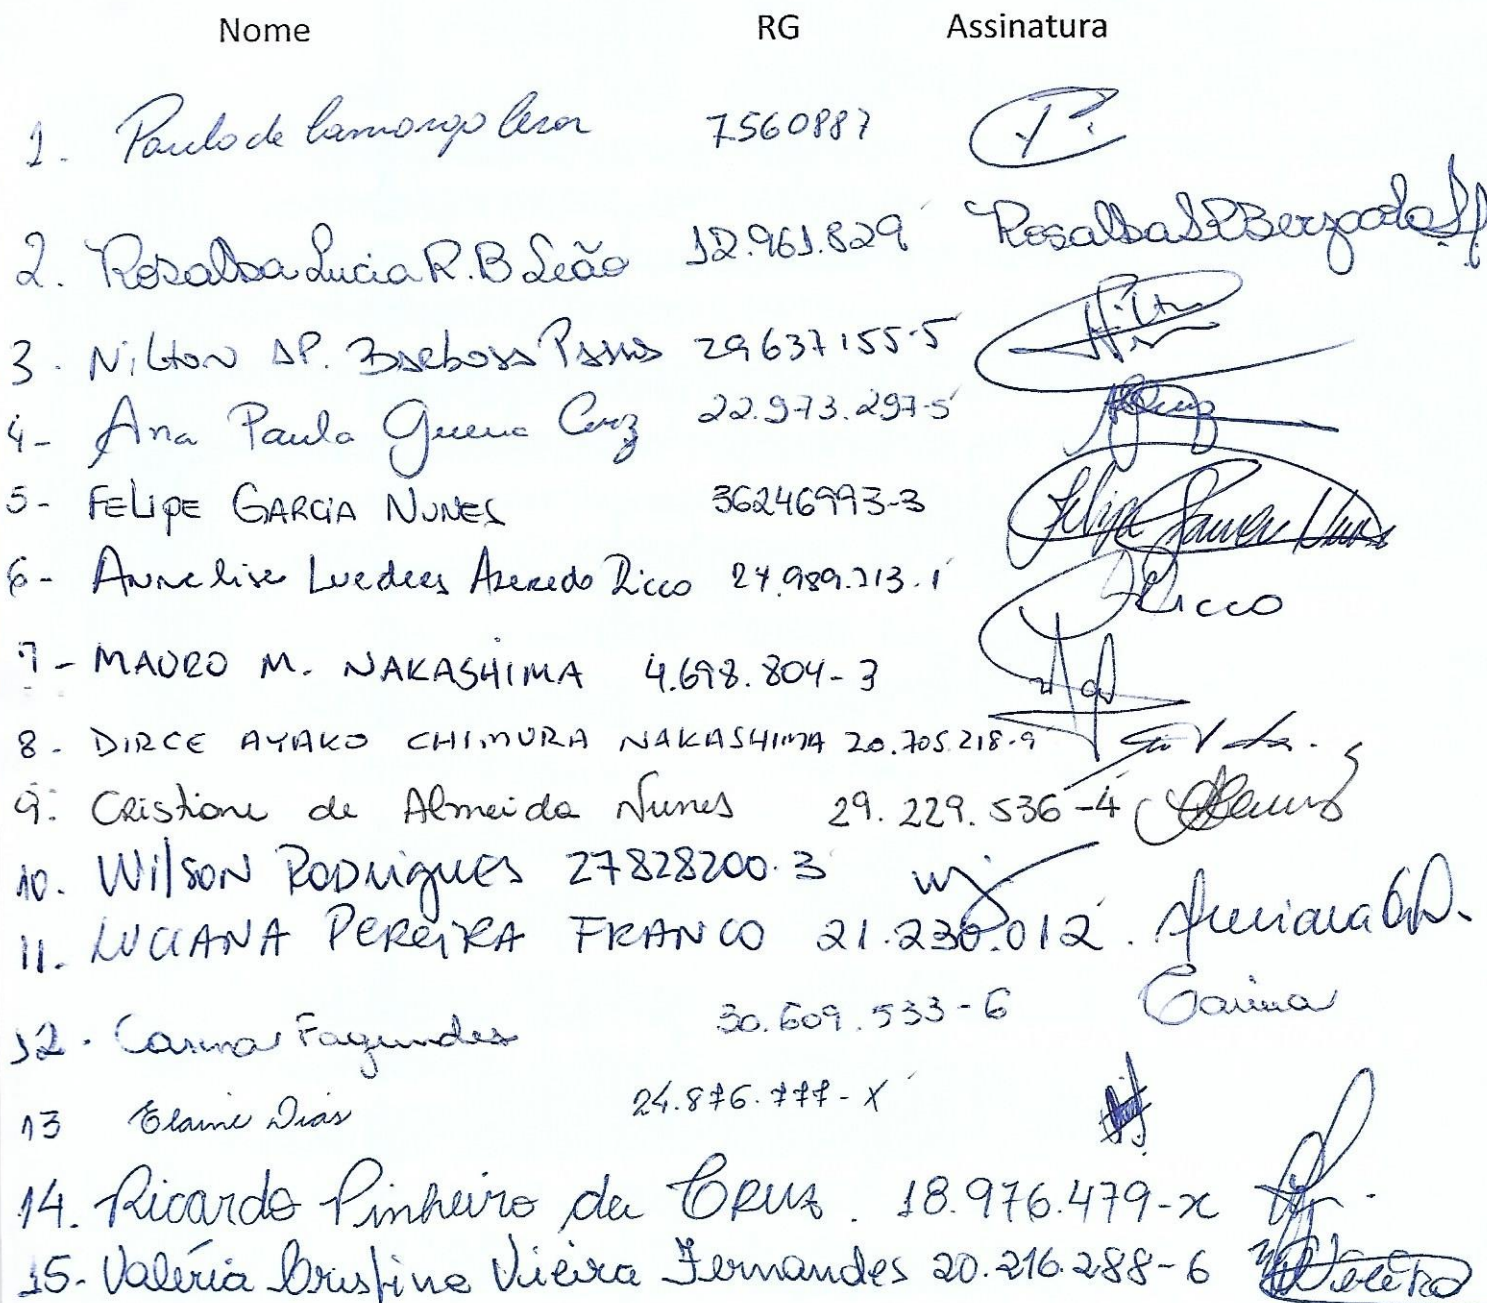 Nome RG Assinatura
1. Paulo de Camargo Cesar 7560887
2. Rosalba Lucia R. B Leão 12.961.829 Rosalba
3. Nilton AP. Barbosa Passos 29637155-5 Nilton
4- Ana Paula Cruz 22.973.297-5
5- FELIPE GARCIA NUNES 36246993-3 Felipe Nunes
6- Annelise Azeredo Ricco 24.989.213.1 Ricco
7- MAURO M. NAKASHIMA 4.698.804-3
8- DIRCE AYAKO CHIMURA NAKASHIMA 20.705.218-9
9. Cristiane de Almeida Nunes 29.229.536-4
10. Wilson Rodrigues 27828200.3
11. LUCIANA PEREIRA FRANCO 21.230.012 Luciana
12. Carina Fagundes 30.609.533-6 Carina
13 Elaine Dias 24.876.777-X
14. Ricardo Pinheiro da Cruz. 18.976.479-x
15- Valéria Cristina Vieira Fernandes 20.216.288-6